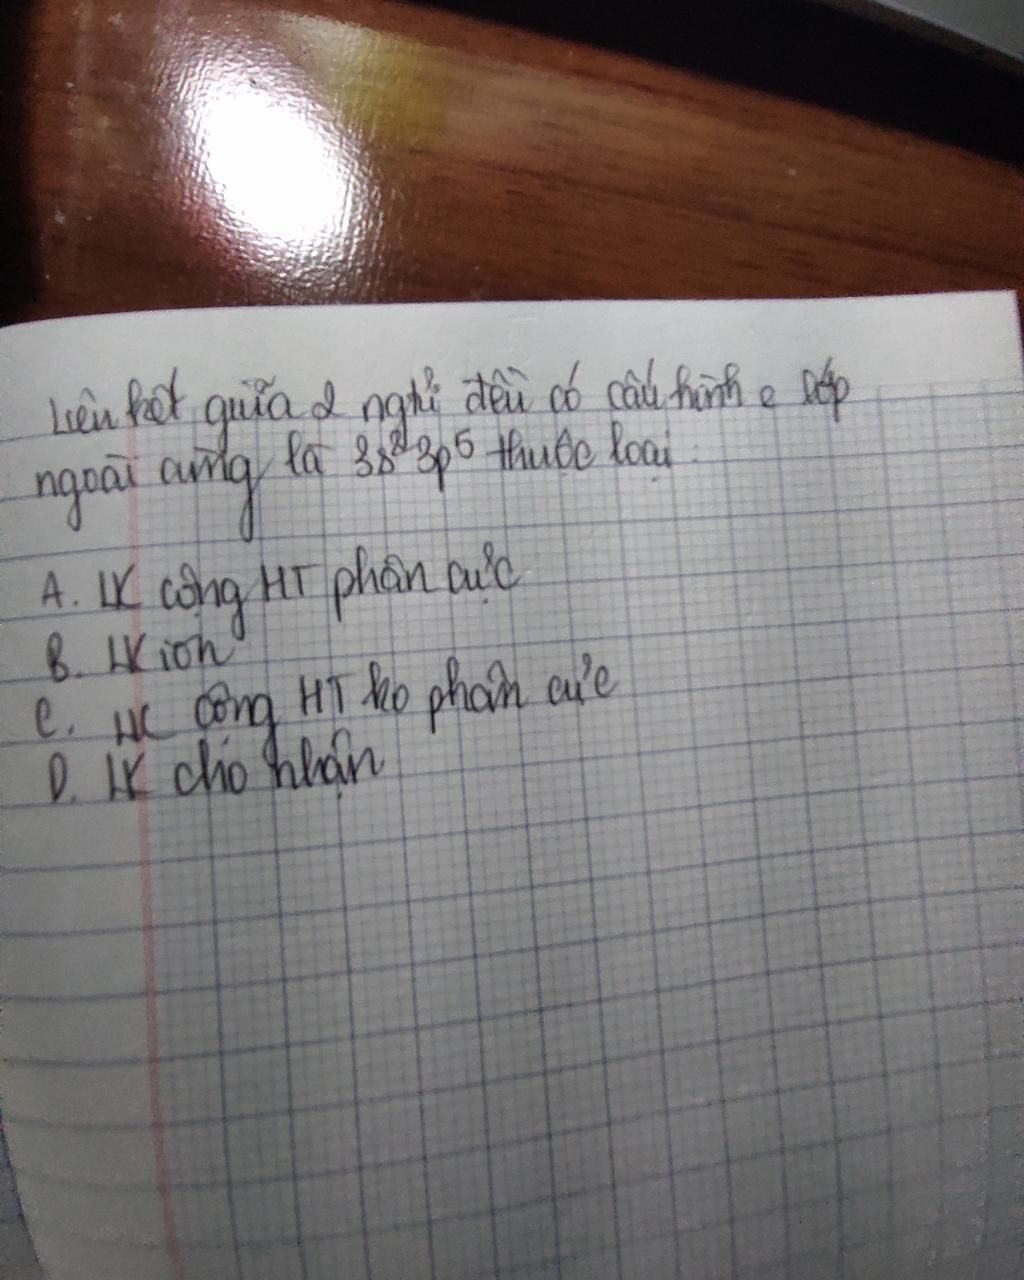 Liên kết giữa 2 ngtử đều có cấu hình e lớp
ngoài cùng là 3s² 3p⁵ thuộc loại:
A. LK cộng HT phân cực
B. LK ion
C. LK cộng HT ko phân cực
D. LK cho nhận